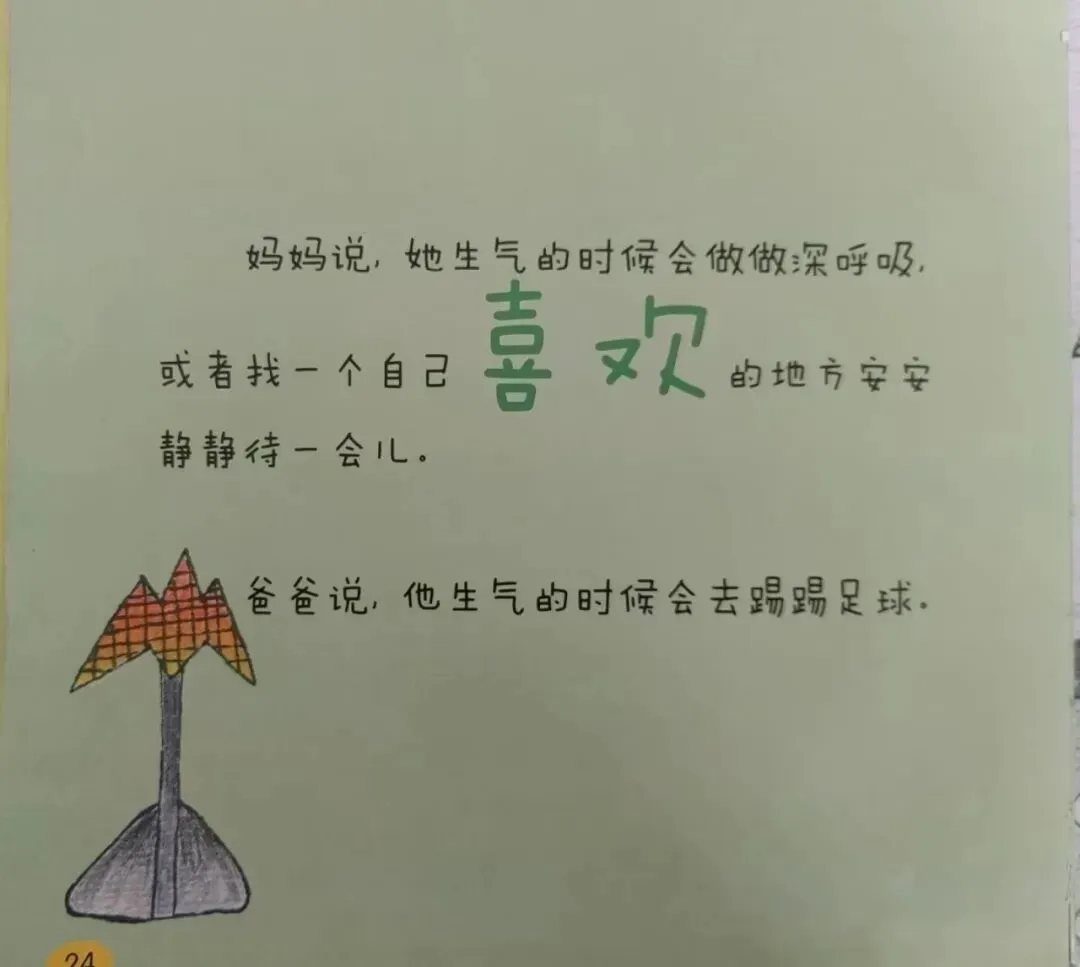 妈妈说，她生气的时候会做做深呼吸，
或者找一个自己喜欢的地方安安
静静待一会儿。
爸爸说，他生气的时候会去踢踢足球。
24